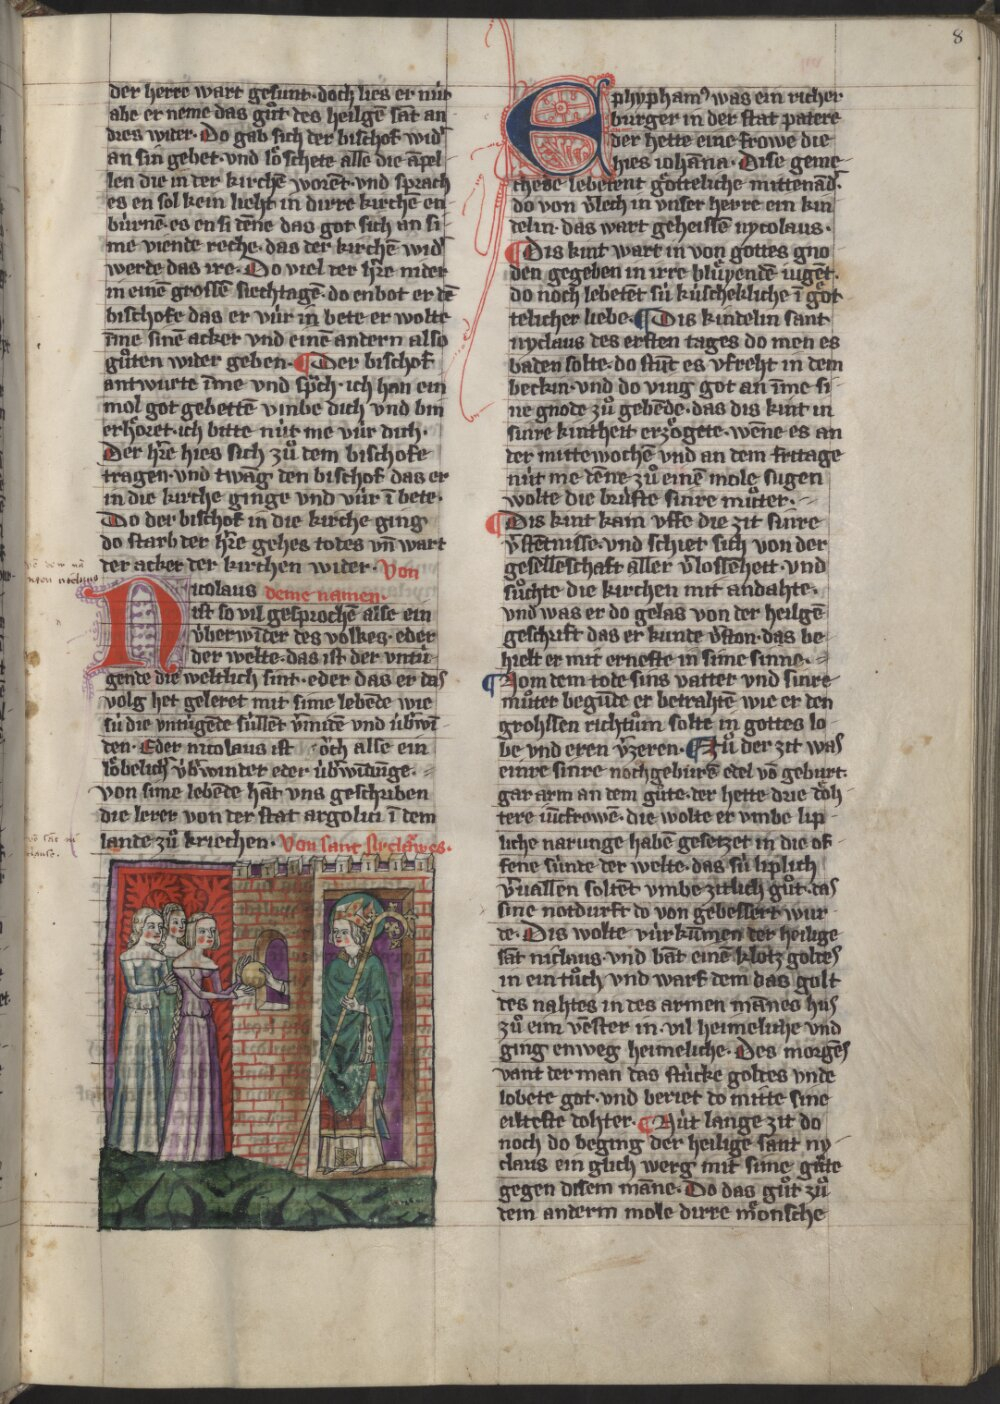 8
der herre wart gesunt· doch lies er nüt
abe er neme das gůt des heilgē sāt an
dies wider· Do gab sich der bischof wid᷑
an sin gebet· vnd lo᷑schete alle die ampel
len die in der kirchē worent· vnd sprach
es en sol kein lieht in dirre kirche en
bürnē· es en si dēne das got sich an si
me viende reche· das der kirchē wid᷑
werde das ire· Do viel der h᷑re nider
in einē grossē siechtagē· do enbot er dē
bischofe das er vür in bete er wolte
īme sinē acker vnd einē andern also
gůten wider geben· Der bischof
antwurte īme vnd sp᷑ch· ich han ein
mol got gebettē vmbe dich vnd bin
erhöret· ich bitte nüt me vür dich·
Der h᷑re hies sich zů dem bischofe
tragen· vnd twāg den bischof das er
in die kirche ginge vnd vür ī bete·
Do der bischof in die kirche ging
do starb der h᷑re gehes todes vn̄ wart
der acker der kirchen wider· Von
Nicolaus deme namen·
ist so vil gesprochē alse ein
v᷑berwīder des volkes· eder
der welte· das ist der vntu᷑
gende die weltlich sint· eder das er das
volg het geleret mit sime lebēde wie
sü die vntugēde süllēt v᷑midē vnd üb᷑wī
den· Eder nicolaus ist öch alse ein
löbelich v᷑b᷑winder eder üb᷑widūge·
von sime lebēde hāt vns geschriben
die lerer von der stat argolici ī dem
lande zů kriechen· Von sant nyclawes·
Ephyphani᷒ was ein richer
burger in der stat patere
der hette eine frowe die
hies iohāna· Dise geme
thede lebetent götteliche mittenād᷑·
do von v᷑lech in vnser herre ein kin
delin· das wart geheissē nycolaus·
Dis kint wart in von gottes gno
den gegeben in irre blüyendē iugēt·
do noch lebetēt sü küschekliche ī göt
telicher liebe· Dis kindelin sant
nyclaus des ersten tages do men es
baden solte· do stūt es vfreht in dem
beckin· vnd do ving got an īme si
ne gnode zů gebēde· das dis kint in
sinre kintheit erzögete· wēne es an
der mittewochē vnd an dem fritage
nüt me dēne zů einē mole sugen
wolte die brüste sinre můter·
Dis kint kam vffe die zit sinre
v᷑stētnisse· vnd schiet sich von der
geselleschaft aller v᷑lossēheit· vnd
sůchte die kirchen mit andahte·
vnd was er do gelas von der heilgē
geschrift das er kunde v᷑ston· das be
hielt er mit erneste in sime sinne·
Nom dem tode sins vatter vnd sinre
můter begūde er betrahtē wie er den
grohssen richtům solte in gottes lo
be vnd eren v᷑zeren· Zů der zit was
einre sinre nochgeburē edel vō geburt·
gar arm an dem gůte· der hette drie döh
tere iūcfrowē· die wolte er vmbe lip
liche narunge habē gesetzet in die of
fene sünde der welte· das sü liplich
v᷑uallen soltēt vmbe zitlich gůt· das
sine notdurft do von gebessert wur
de· Dis wolte vürkūmen der heilige
sāt niclaus· vnd bāt einē klotz goldes
in ein tůch vnd warf dem das golt
des nahtes in des armen mānes hus
zů eim vēster in· vil heimeliche vnd
ging enweg heimeliche· Des morgēs
vant der man das stücke goldes vnde
lobete got· vnd beriet do mitte sine
eilteste dohter· Nüt lange zit do
noch do beging der heilige sant ny
claus ein glich werg mit sime gůte
gegen disem māne· Do das gůt zů
dem anderm mole dirre mönsche